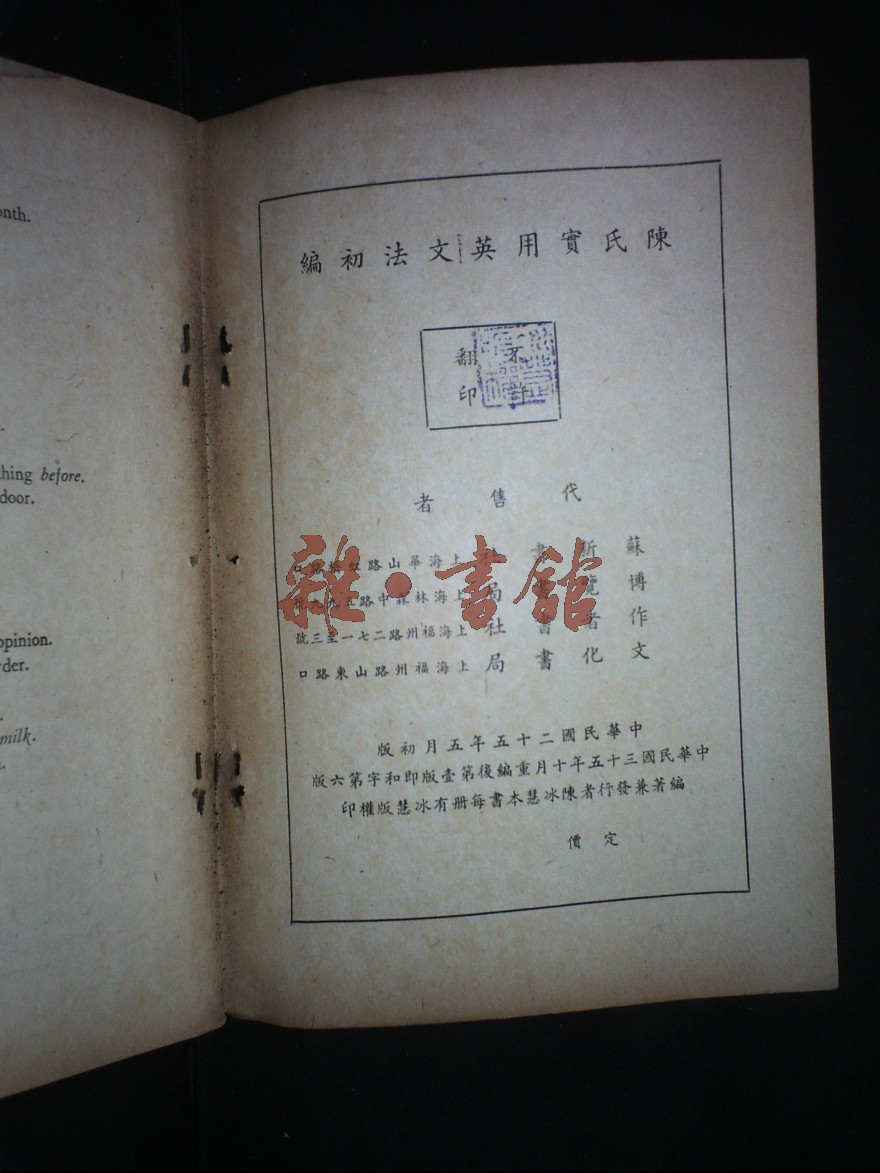 onth.
thing before.
door.
opinion.
rder.
milk.
陳氏實用英文法初編
不許
翻印
代售者
蘇新書社 上海華山路
博覽書局 上海林森中路五九九
作者書社 上海福州路二七一至三號
文化書局 上海福州路山東路口
中華民國二十五年五月初版
中華民國三十五年十月重編後第壹版即和字第六版
編著兼發行者陳冰慧本書每册有冰慧版權印
定價
雜·書館